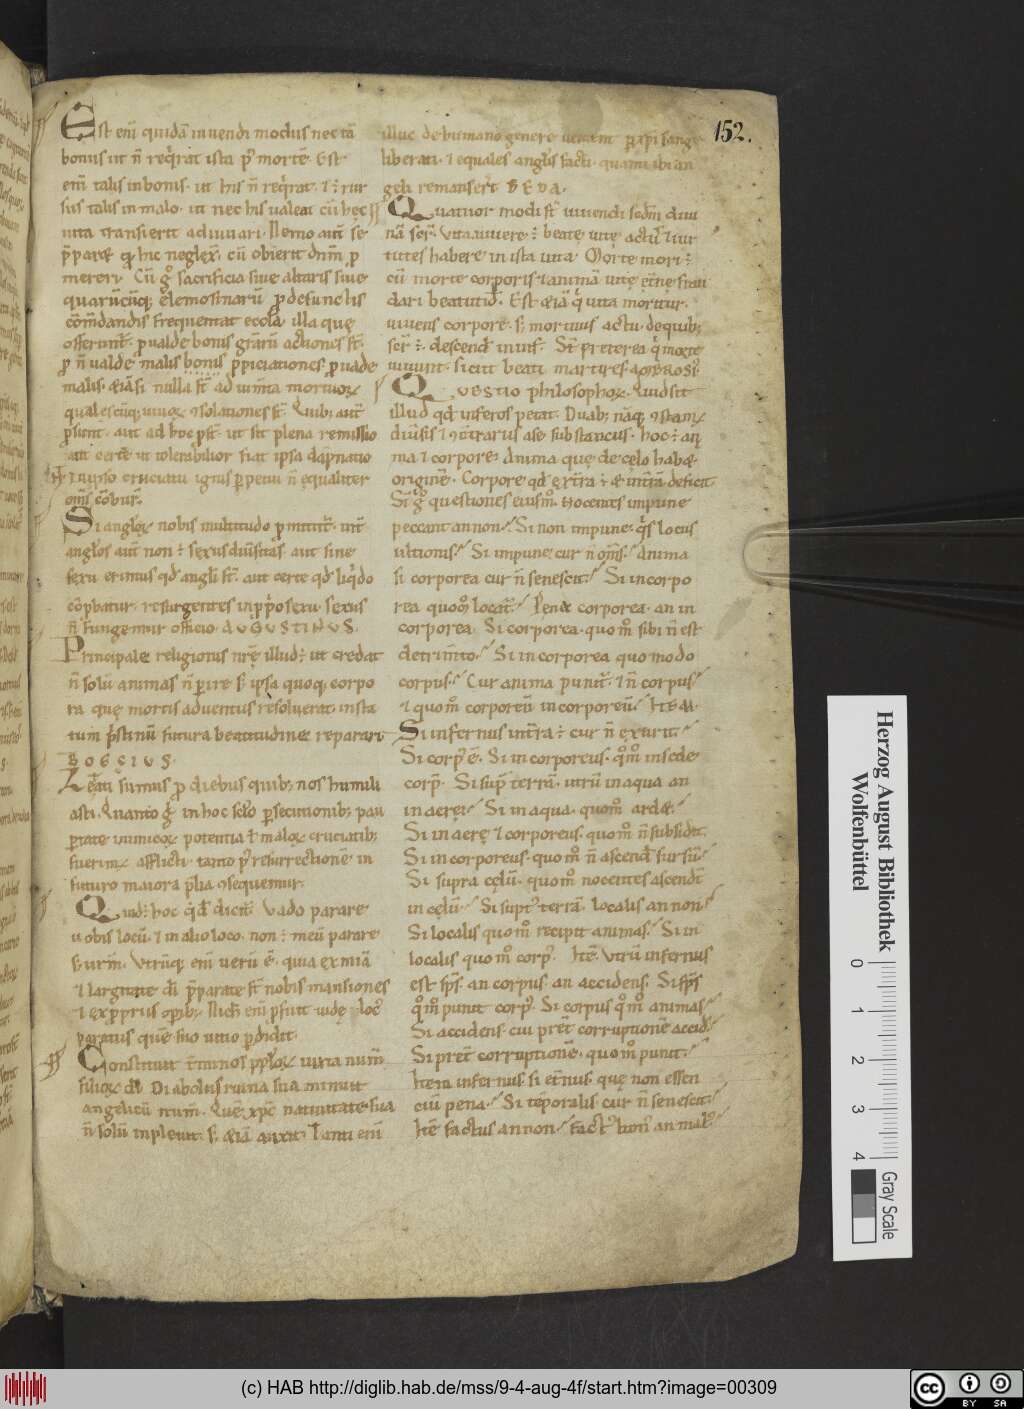 Est enī quidā inuendi modus nec tā
bonus ut n̄ req̄rat ista p' mortē. Est
enī talis in bonis. ut his n̄ req̄rat. ⁊ rur
sus talis in malo. ut nec his ualeat cū hęc
uita transierit adiuuari. Nemo aut̄ se
p̄paret
merery. Cū g̊ sacrificia siue altaris siue
quarūcūq; elemosinarū p defunctis
cōm̄dandis frequentat eccl̄a illa quę
offerunt̄. p ualde bonis grāꝝ actiones st̄.
p n̄ ualde malis bonis p̄piciationes. p ualde
malis. etiā si nulla st̄ ad uim̄ta mortuoꝝ
qualescūq; uiuoꝝ ꝯsolationes st̄. Quib; aut̄
psunt. aut ad hoc pst̄. ut sit plena remissio
aut certe ut tolerabilior fiat ipsa dāpnatio
cruciatu ignis ppetui n̄ equaliter
om̄s
Si angloꝝ nobis multitudo pmittit̄. int̄
anglos aut̄ non ē sexus diūsitas. aut sine
sexu erimus qđ angli st̄. aut certe qđ liq̄do
cōpbatur. resurgentes in pp̄o sexu. sexus
n̄ fungemur officio. AUGUSTINUS.
Principale religionis nr̄ę illud ē ut credat
n̄ solū animas n̄ pire s; ipsa quoq; corpo
ra quę mortis aduentus resoluerat in sta
tum p̄stinū futura beatitudine reparari.
BOEÇIUS.
Leati sumus p diebus quib; nos humili
asti. Quanto g̊ in hoc sc̄lo psecutionib; pau
ptate inimicoꝝ potentia ł maloꝝ cruciatib;
fuerim' afflicti. tanto p' resurrectionē in
futuro maiora p̄mia ꝯsequemur.
Quid ē hoc qđ dicit. Uado parare
uobis locū. ⁊ in alio loco. non ē meū parare
s; urm̄. Utrūq; enī uerū ē. quia ex mia
⁊ largitate dī p̄parate st̄ nobis mansiones
⁊ ex ppriis opib; Nichil enī psuit
paratus quē suo uitio pdidit.
Constituit t̄minos pploꝝ iuxta num̄
filioꝝ dī. Diabolus ruina sua minuit
angelicū num̄. Quē xp̄c natiuitate sua
n̄ solū inpleuit. s; etiā auxit. Tanti enī
illuc de humano genere
liberati. ⁊ equales anglis facti. quanti ibi an
geli remanserī. BEDA.
Quatuor modi st̄ uiuendi scdm̄ diui
nā scr̄. Uita uiuere ē beatę uitę actū ⁊ uir
tutes habere in ista uita. Morte mori ē
cū morte corporis ⁊ animā uitę
dari beatitud'. Est etiā q̄ uita moritur.
uiuens corpore. s; mortuus actu. de quib;
scr̄ ē. descend' in inf̄. St̄ preterea q̄ morte
uiuunt. sicut beati martires. AMBROSI'.
Questio philosophoꝝ. Quid sit
illud qđ inferos petat. Duab; nāq; ꝯstam'
diūsis ⁊ ꝯtrariis a se substanciis. hoc ē ani
ma ⁊ corpore. Anima quę de celo habet
originē. Corpore qđ ex tr̄a ē ⁊ in tr̄a deficit.
St̄ g̊ questiones eiusm̊. Nocentes impune
peccant an non. Si non impune. q̄s locus
ultionis. Si impune. cur n̄ om̄s. Anima
si corporea cur n̄ senescit. Si incorpo
rea quom̊ locat̄. Pena corporea. an in
corporea. Si corporea. quom̊ sibi n̄ est
detrim̄to. Si incorporea quomodo
corpus. Cur anima punit̄. ⁊ n̄ corpus
⁊ quom̊ corporeū incorporeū. ITEM.
Si infernus in tr̄a ē cur n̄ exurit.
Si corp' ē. Si incorporeus. q̊m̊ in sede
corp̄. Si sup̄ terrā. utrū in aqua an
in aere. Si in aqua. quom̊ ardet.
Si in aerę ⁊ corporeus. quom̊ n̄ subsidit.
Si incorporeus. quom̊ n̄ ascend' sursū.
Si supra cęlū. quom̊ nocentes ascend̄t
in cęlū. Si supt' terrā. localis an non.
Si localis quom̊ recipit animas. Si in
localis quom̊ corp'. Itē. Utrū infernus
est sp̄s. an corpus. an accidens. Si sp̄s
q̊m̊ punit corp'. Si corpus q̊m̊ animas
Si accidens. cui pret̄ corruptionē accid'.
Si pret̄ corruptionē. quom̊ punit.
Item infernus. si et̄nus. quę non essen
ciū pena. Si tēporalis cur n̄ senescit.
Itē factus an non. Fact' bon' an mal'.
152.
Herzog August Bibliothek
Wolfenbüttel
0 1 2 3 4
Gray Scale
(c) HAB http://diglib.hab.de/mss/9-4-aug-4f/start.htm?image=00309
cc BY SA